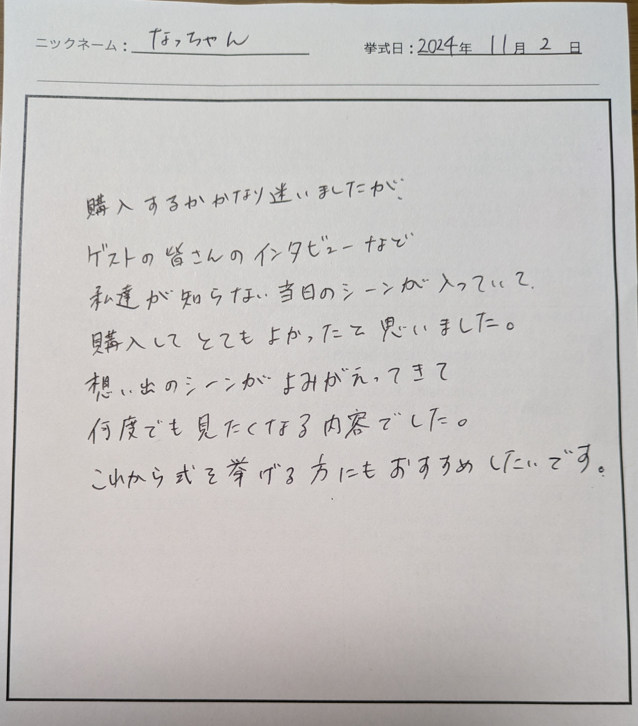 ニックネーム： なっちゃん 挙式日：2024年 11月 2 日
購入するかかなり迷いましたが、
ゲストの皆さんのインタビューなど
私達が知らない当日のシーンが入っていて、
購入してとてもよかったと思いました。
想い出のシーンがよみがえってきて
何度でも見たくなる内容でした。
これから式を挙げる方にもおすすめしたいです。